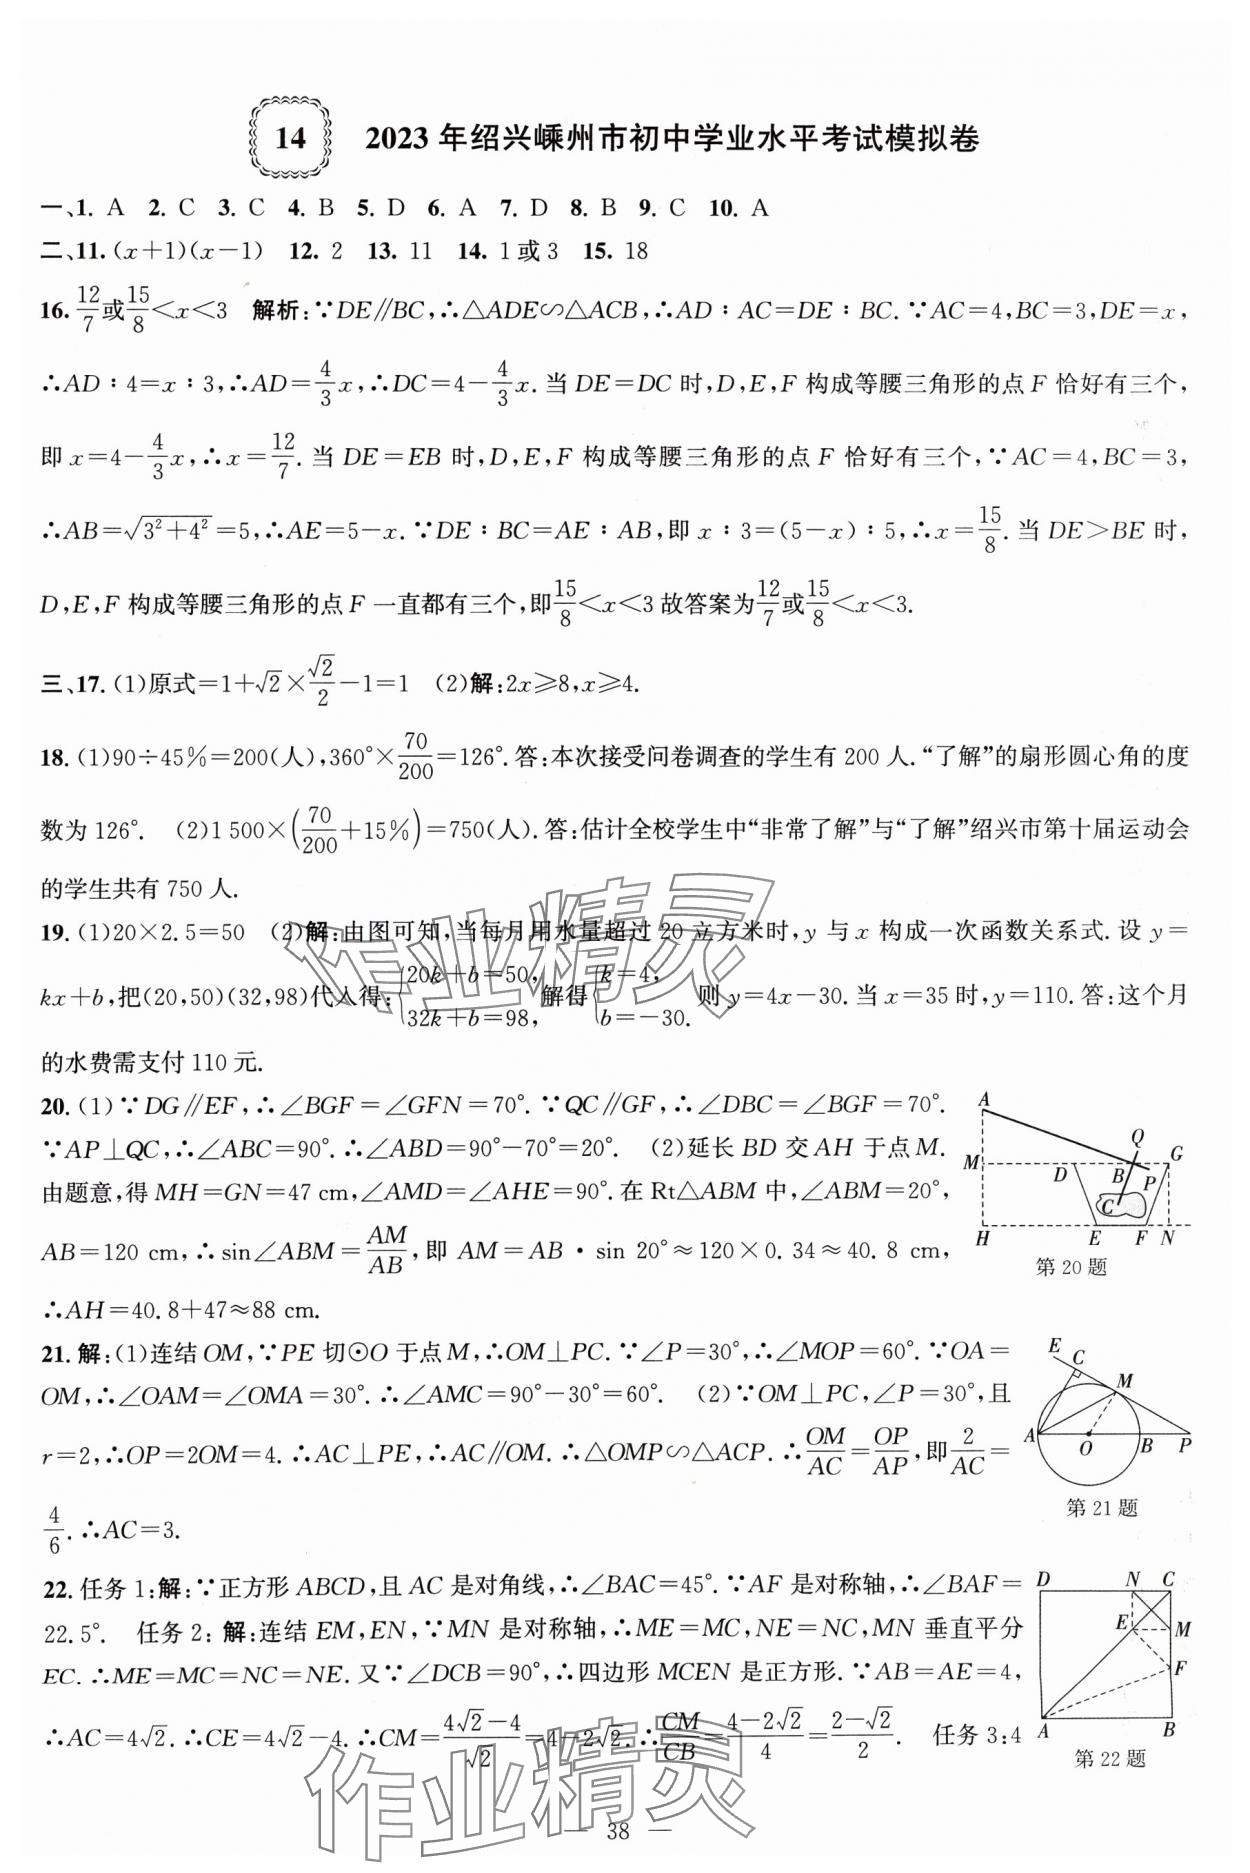 14 2023年绍兴嵊州市初中学业水平考试模拟卷
一、1. A 2. C 3. C 4. B 5. D 6. A 7. D 8. B 9. C 10. A
二、11. (x+1)(x-1) 12. 2 13. 11 14. 1或3 15. 18
16. 12/7或15/8<x<3 解析:∵DE∥BC,∴△ADE∽△ACB,∴AD∶AC=DE∶BC.∵AC=4,BC=3,DE=x,
∴AD∶4=x∶3,∴AD=4/3x,∴DC=4-4/3x.当DE=DC时,D,E,F构成等腰三角形的点F恰好有三个,
即x=4-4/3x,∴x=12/7.当DE=EB时,D,E,F构成等腰三角形的点F恰好有三个,∵AC=4,BC=3,
∴AB=√(3²+4²)=5,∴AE=5-x.∵DE∶BC=AE∶AB,即x∶3=(5-x)∶5,∴x=15/8.当DE>BE时,
D,E,F构成等腰三角形的点F一直都有三个,即15/8<x<3故答案为12/7或15/8<x<3.
三、17. (1)原式=1+√2×√2/2-1=1 (2)解:2x≥8,x≥4.
18. (1)90÷45%=200(人),360°×70/200=126°.答:本次接受问卷调查的学生有200人.“了解”的扇形圆心角的度
数为126°. (2)1 500×(70/200+15%)=750(人).答:估计全校学生中“非常了解”与“了解”绍兴市第十届运动会
的学生共有750人.
19. (1)20×2.5=50 (2)解:由图可知,当每月用水量超过20立方米时,y与x构成一次函数关系式.设y=
kx+b,把(20,50)(32,98)代入得:{20k+b=50, 32k+b=98, 解得{k=4, b=-30. 则y=4x-30.当x=35时,y=110.答:这个月
的水费需支付110元.
20. (1)∵DG∥EF,∴∠BGF=∠GFN=70°.∵QC∥GF,∴∠DBC=∠BGF=70°.
∵AP⊥QC,∴∠ABC=90°.∴∠ABD=90°-70°=20°. (2)延长BD交AH于点M.
由题意,得MH=GN=47 cm,∠AMD=∠AHE=90°.在Rt△ABM中,∠ABM=20°,
AB=120 cm,∴sin∠ABM=AM/AB,即AM=AB·sin 20°≈120×0.34≈40.8 cm,
∴AH=40.8+47≈88 cm.
A
Q
M D B P G
C
H E F N
第20题
21. 解:(1)连结OM,∵PE切⊙O于点M,∴OM⊥PC.∵∠P=30°,∴∠MOP=60°.∵OA=
OM,∴∠OAM=∠OMA=30°.∴∠AMC=90°-30°=60°. (2)∵OM⊥PC,∠P=30°,且
r=2,∴OP=2OM=4.∴AC⊥PE,∴AC∥OM.∴△OMP∽△ACP.∴OM/AC=OP/AP,即2/AC=
4/6.∴AC=3.
E C
M
A O B P
第21题
22. 任务1:解:∵正方形ABCD,且AC是对角线,∴∠BAC=45°.∵AF是对称轴,∴∠BAF=
22.5°. 任务2:解:连结EM,EN,∵MN是对称轴,∴ME=MC,NE=NC,MN垂直平分
EC.∴ME=MC=NC=NE.又∵∠DCB=90°,∴四边形MCEN是正方形.∵AB=AE=4,
∴AC=4√2.∴CE=4√2-4.∴CM=(4√2-4)/√2=4-2√2.∴CM/CB=(4-2√2)/4=(2-√2)/2. 任务3:4
D N C
E M
F
A B
第22题
作业精灵
作业精灵
— 38 —